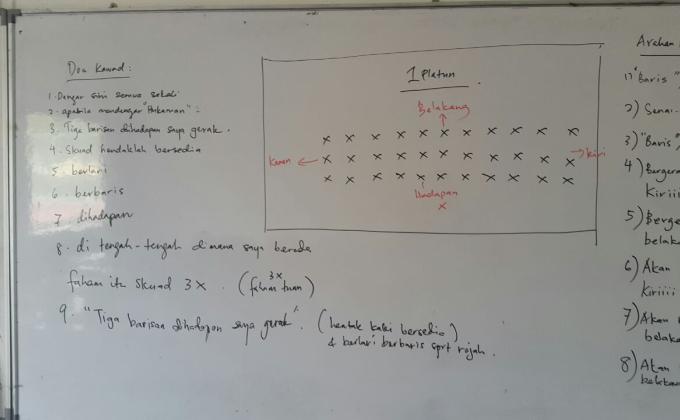 Doa Kawad:
1. Dengar sini semua sekali
2. apabila mendengar "Hukuman" :
3. Tiga barisan dihadapan saya gerak.
4. Skuad hendaklah bersedia
5. berlari
6. berbaris
7. dihadapan
8. di tengah-tengah dimana saya berada
faham itu skuad 3x. (faham tuan) 3x
9. "Tiga barisan dihadapan saya gerak". (hentak kaki bersedia)
& berlari berbaris sprt rajah.
1 Platun
Belakang
x x x x x x x x x x x
Kanan x x x x x x x x x x x kiri
x x x x x x x x x x x
Hadapan
x
Arahan
1) "Baris"
2) Senai
3) "Baris"
4) Bergera
Kiriii
5) Berge
belaka
6) Akan
Kiriiii
7) Akan
belaka
8) Akan